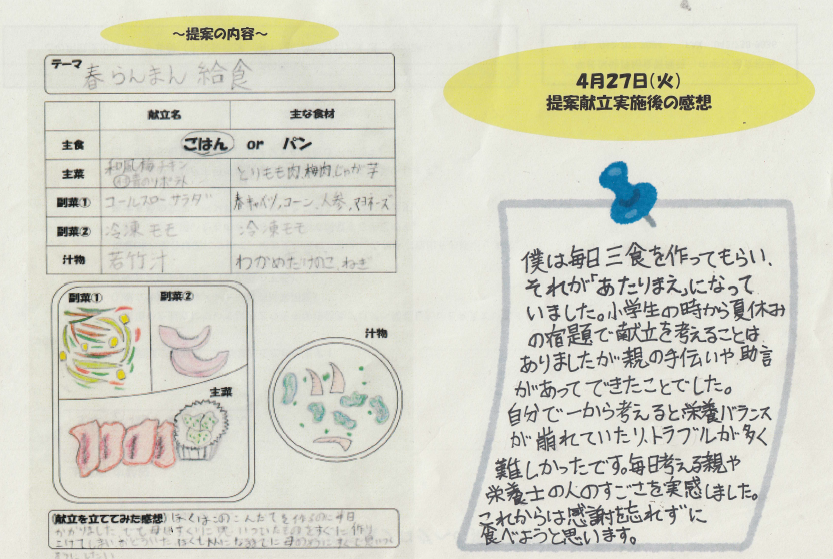 ～提案の内容～
テーマ
春らんまん 給食
献立名 主な食材
主食 ごはん or パン
主菜 和風梅チキン とりもも肉、梅肉、じゃが芋
副菜① コールスローサラダ 春キャベツ、コーン、人参、マヨネーズ
副菜② 冷凍モモ 冷凍モモ
汁物 若竹汁 わかめ、たけのこ、ねぎ
副菜①
副菜②
主菜
汁物
(献立を立ててみた感想) ぼくはこのこんだてを作るのに4日
かかりました
4月27日(火)
提案献立実施後の感想
僕は毎日三食を作ってもらい、
それが「あたりまえ」になって
いました。小学生の時から夏休み
の宿題で献立を考えることは
ありましたが親の手伝いや助言
があってできたことでした。
自分で一から考えると栄養バランス
が崩れていたり、トラブルが多く
難しかったです。毎日考える親や
栄養士の人のすごさを実感しました。
これからは感謝を忘れずに
食べようと思います。